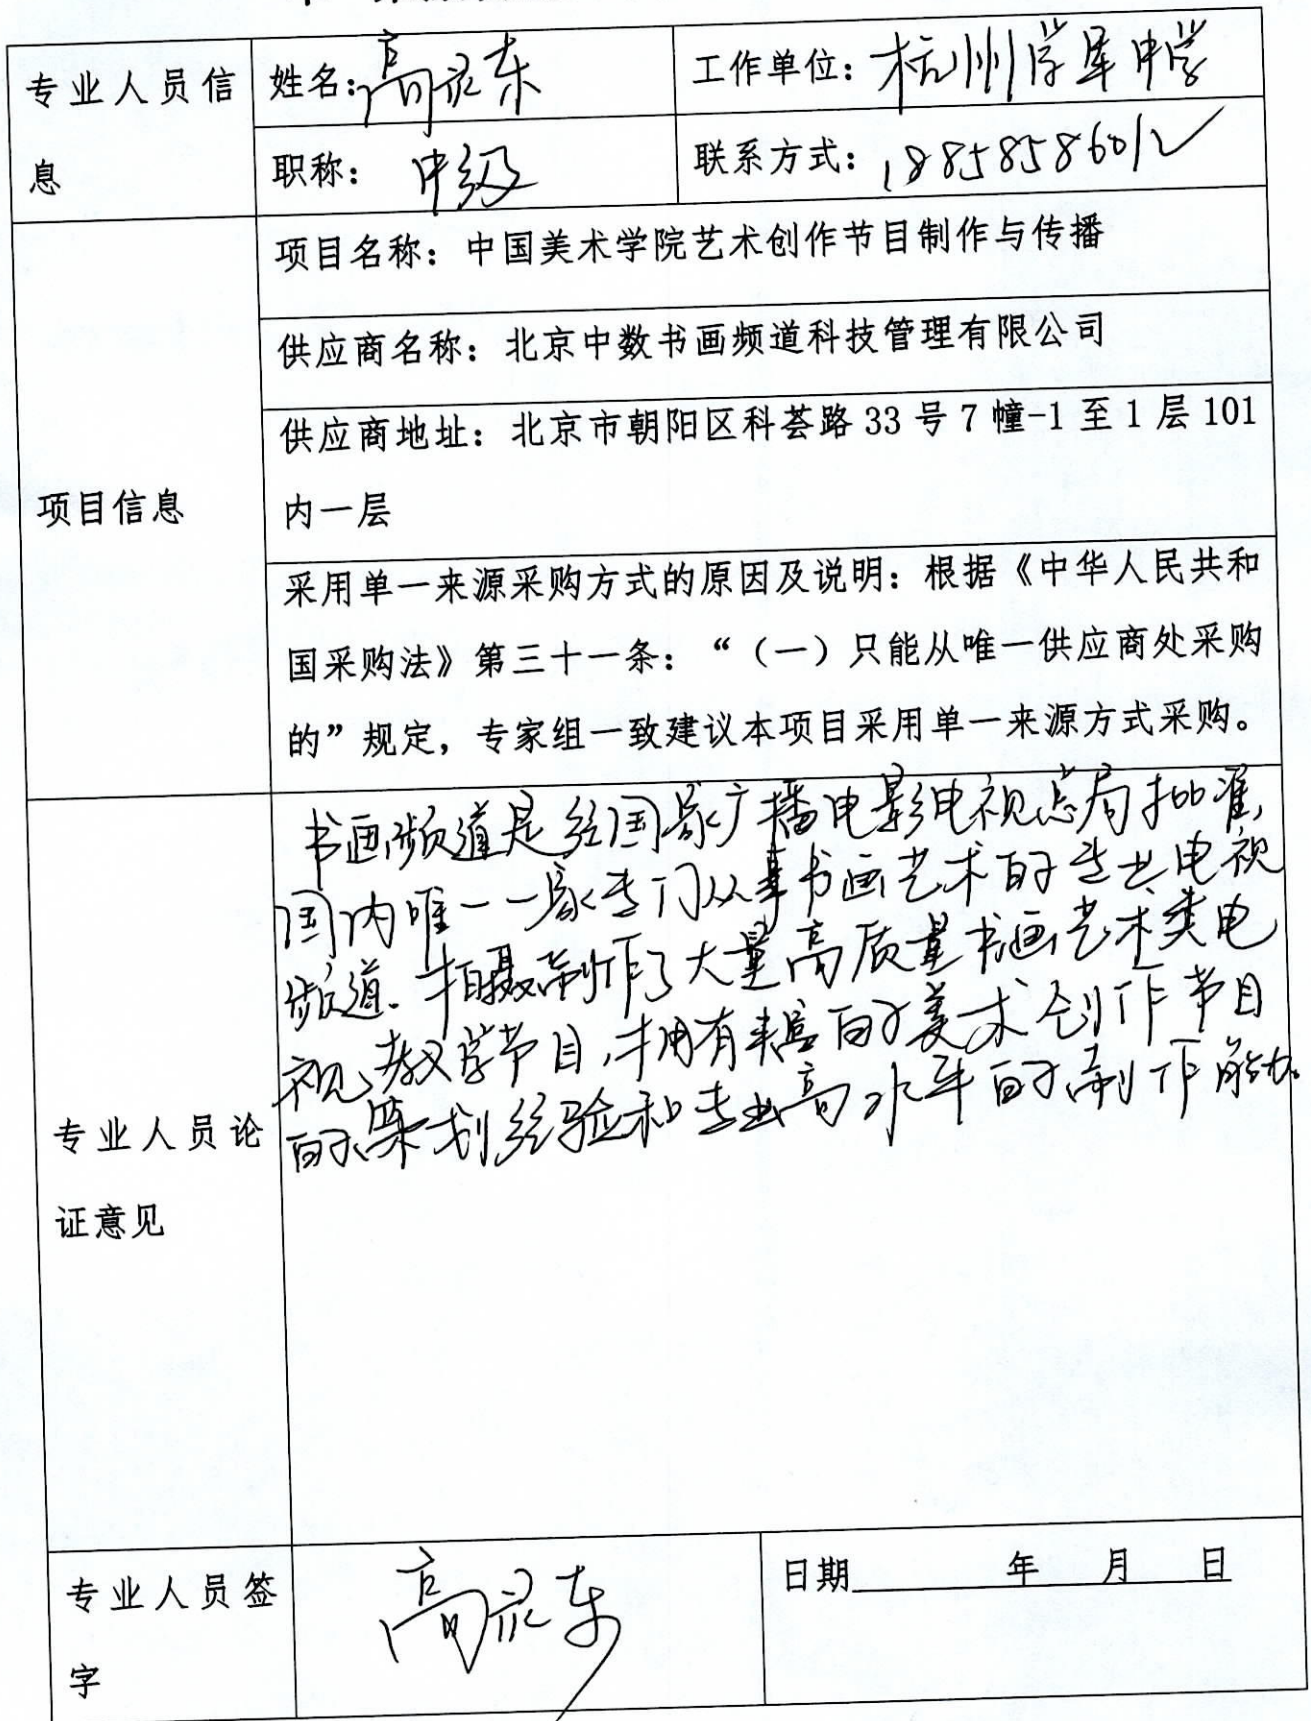 专业人员信息
姓名：高录东
工作单位：杭州学军中学
职称：中级
联系方式：18858586012
项目信息
项目名称：中国美术学院艺术创作节目制作与传播
供应商名称：北京中数书画频道科技管理有限公司
供应商地址：北京市朝阳区科荟路 33 号 7 幢-1 至 1 层 101
内一层
采用单一来源采购方式的原因及说明：根据《中华人民共和
国采购法》第三十一条：“（一）只能从唯一供应商处采购
的”规定，专家组一致建议本项目采用单一来源方式采购。
专业人员论
证意见
书画频道是经国家广播电影电视总局批准，
国内唯一一家专门从事书画艺术的专业电视
频道．拍摄制作了大量高质量书画艺术类电
视教学节目，拥有丰富的美术创作节目
的策划经验和专业高水平的制作能力。
专业人员签
字
高录东
日期 年 月 日